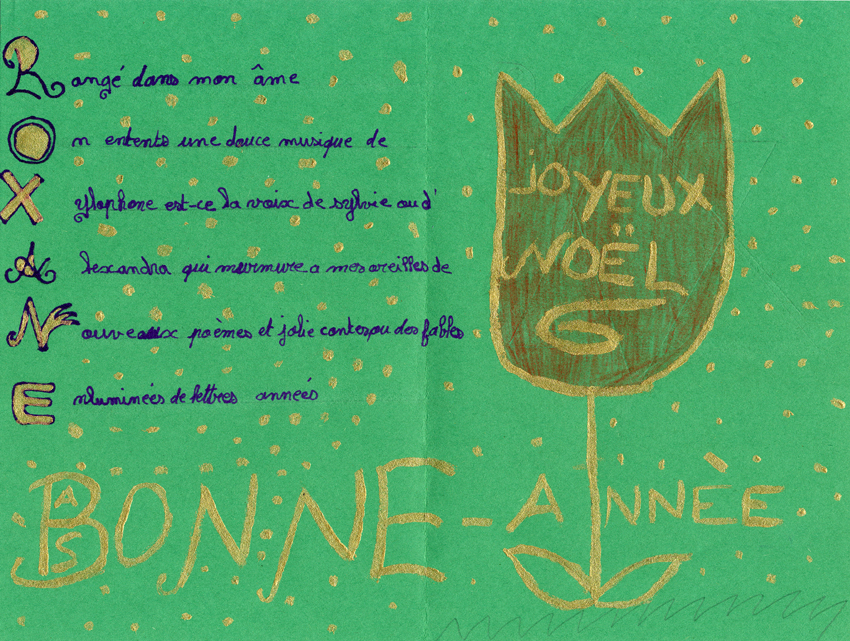 Rangé dans mon âme
On entents une douce musique de
Xylophone est-ce la voix de sylvie ou d'
Alexandra qui murmure a mes oreilles de
Nouveaux poèmes et jolie contes ou des fables
Enluminéés de lettres annéés
JOYEUX
NOËL
G
BONNE-ANNÈE
AS